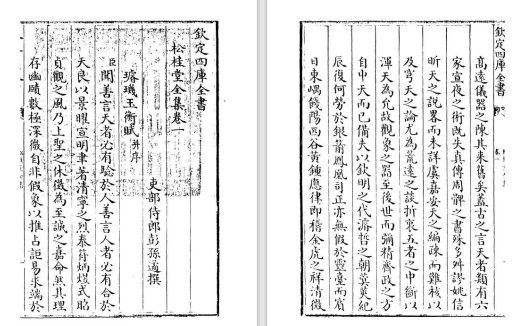 欽定四庫全書
松桂堂全集卷一
吏部侍郎彭孫遹撰
璿璣玉衡賦并序
臣聞善言天者必有驗於人善言人者必有合於
天良以景曜宣明聿著清寧之烈泰符炳煥式昭
貞觀之風乃上聖之休徵為至誠之嘉命然其理
存幽賾數極深微自非假象以推占詎易求端於
欽定四庫全書
高遠儀器之陳其来舊矣盖古之言天者類有六
家宣夜之術既失真傳周髀之書殊多舛謬姚信
昕天之說畧而未詳虞喜安天之編疎而難核以
及穹天之論尤為荒遠之談折衷五者之中斷以
渾天為允故觀象之器至後世而彌精齊政之方
自中天而已備夫以欽明之代濬哲之朝蓂莢紀
辰復何勞於銀箭鳳凰司正亦無假於靈臺而賓
日東嵎餞陽西谷黃鍾應律即稽金虎之祥清微